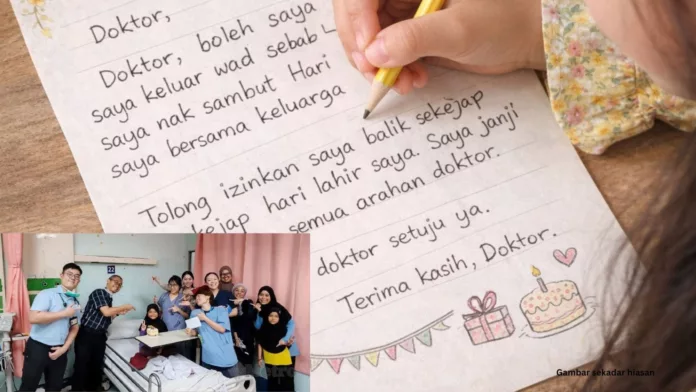 Doktor,
Doktor, boleh saya
saya keluar wad sebab
saya nak sambut Hari
saya bersama keluarga
Tolong izinkan saya balik sekejap
kejap hari lahir saya. Saya janji
semua arahan doktor.
doktor setuju ya.
Terima kasih, Doktor.
22
Gambar sekadar hiasan